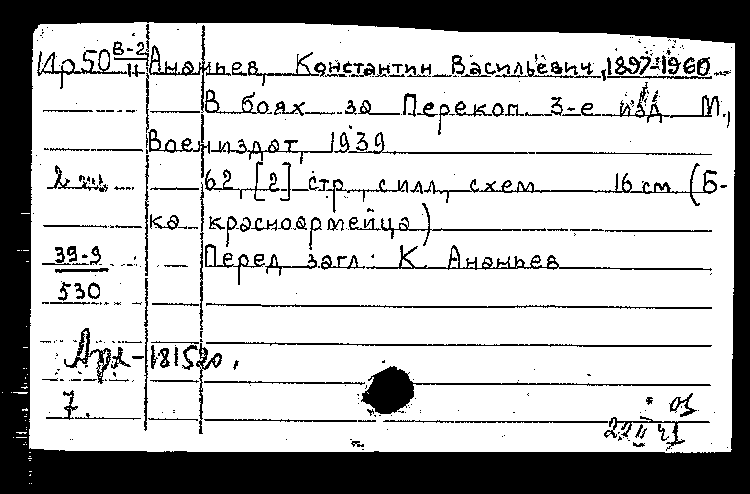 Ир50 В-2/11 Ананьев, Константин Васильевич, 1897-1960
В боях за Перекоп. 3-е изд. М.,
Воениздат, 1939.
2 экз. 62, [2] стр., с илл., схем. 16 см. (Б-
ка красноармейца)
39-9 Перед загл.: К. Ананьев
530
Арх-181520.
7.
01
22 II 41